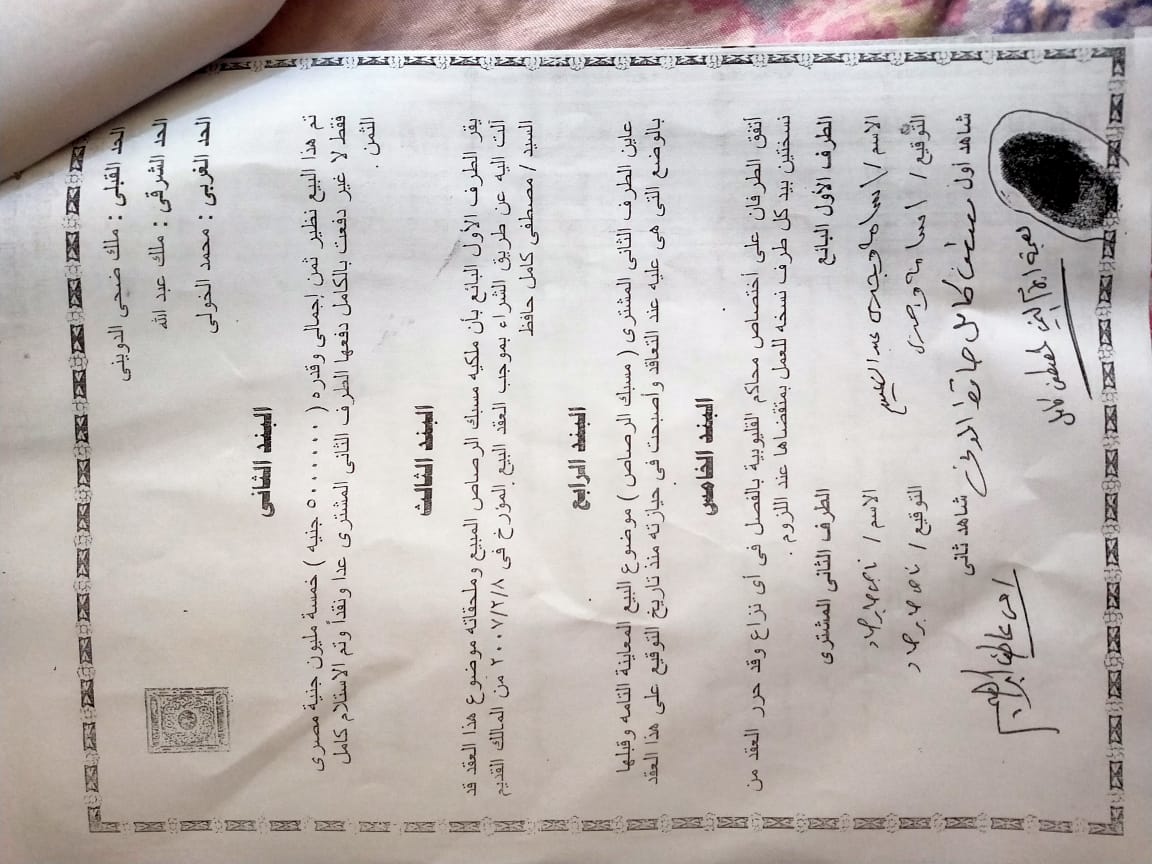 الحد القبلى : ملك ضحى الدوينى
الحد الشرقى : ملك عبد الله
الحد الغربى : محمد الخولى
البند الثانى
تم هذا البيع نظير ثمن إجمالى وقدره ( ٥٠٠٠٠٠٠ جنيه ) خمسة مليون جنية مصرى
فقط لا غير دفعت بالكامل دفعها الطرف الثانى المشترى عدا ونقداً وتم الاستلام كامل
الثمن .
البند الثالث
يقر الطرف الأول البائع بأن ملكيه مسبك الرصاص المبيع وملحقاته موضوع هذا العقد قد
آلت اليه عن طريق الشراء بموجب العقد البيع المؤرخ فى ٢٠٠٧/٢/٨ من المالك القديم
السيد / مصطفى كامل حافظ
البند الرابع
عاين الطرف الثانى المشترى ( مسبك الرصاص ) موضوع البيع المعاينة التامه وقبلها
بالوضع التى هى عليه عند التعاقد وأصبحت فى حيازته منذ تاريخ التوقيع على هذا العقد
البند الخامس
أتفق الطرفان على أختصاص محاكم القليوبية بالفصل فى أى نزاع وقد حرر العقد من
نسختين بيد كل طرف نسخه للعمل بمتقضاها عند اللزوم .
الطرف الأول البائع الطرف الثانى المشترى
الاسم / اسامه وجدى الاسم /
التوقيع / اسامه وجدى التوقيع /
شاهد أول مصطفى كامل حافظ شاهد ثانى